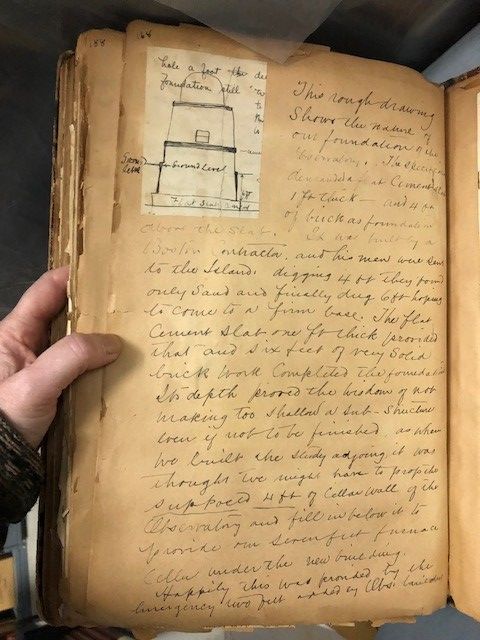 188
168
hole a foot the de
foundation still
Ground Level
Flat Slab
This rough drawing
Shows the nature of
our foundation of the
Observatory. The Specification
demanded a flat Cement Slab
1 ft thick — and 4 ft
of brick as foundation
above the slab. It was built by a
Boston Contractor, and his men were sent
to the Island; digging 4 ft they found
only Sand and finally dug 6 ft hoping
to come to a firm base. The flat
Cement slab one ft thick provided
that and six feet of very Solid
brick work completed the foundation
Its depth proved the wisdom of not
making too shallow a sub-structure
even if not to be finished, as when
we built the study adjoing it was
thought we might have to prop the
supposed 4 ft of Cellar wall of the
Observatory and fill in below it to
provide our seven feet furnace
Cellar under the new building.
Happily this was provided by the
emergency two feet added by Obs. builder